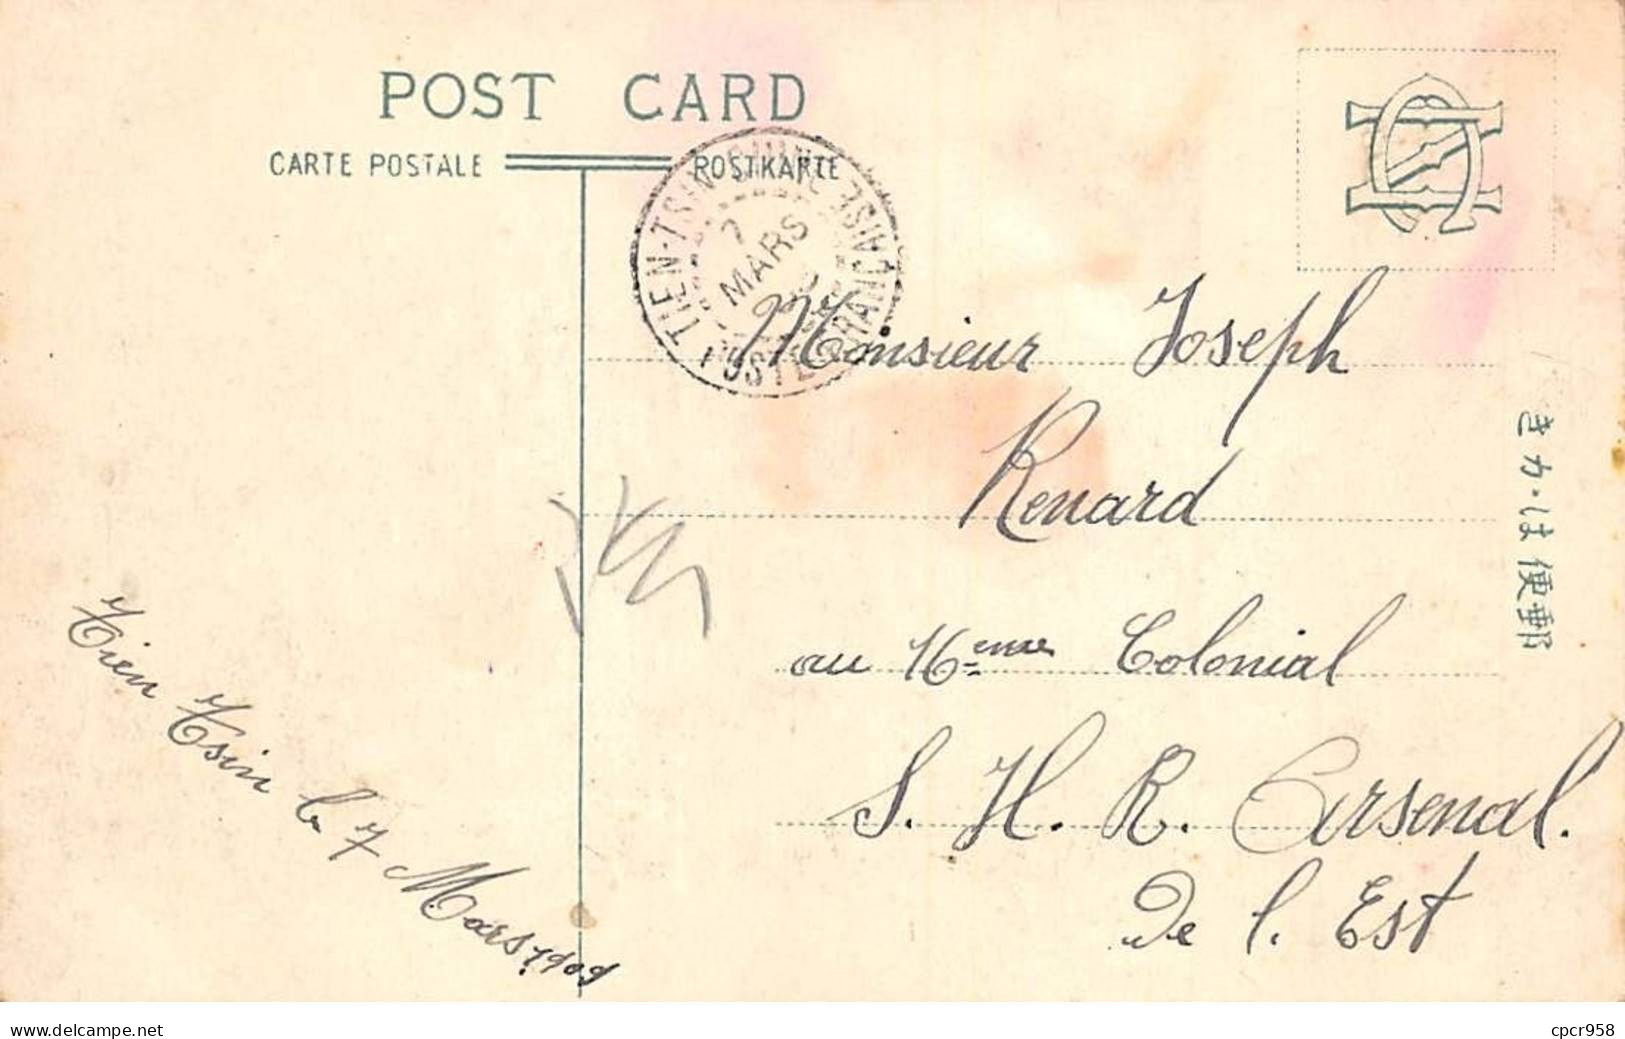 POST CARD
CARTE POSTALE POSTKARTE
TIEN-TSIN CHINE
7
MARS
POSTE FRANÇAISE
Monsieur Joseph
Renard
au 16=eme Colonial
S. H. R. Arsenal.
De l. Est
Tien Tsin le 7 Mars 1909
きカ・は便郵
delcampe.net
cpcr958